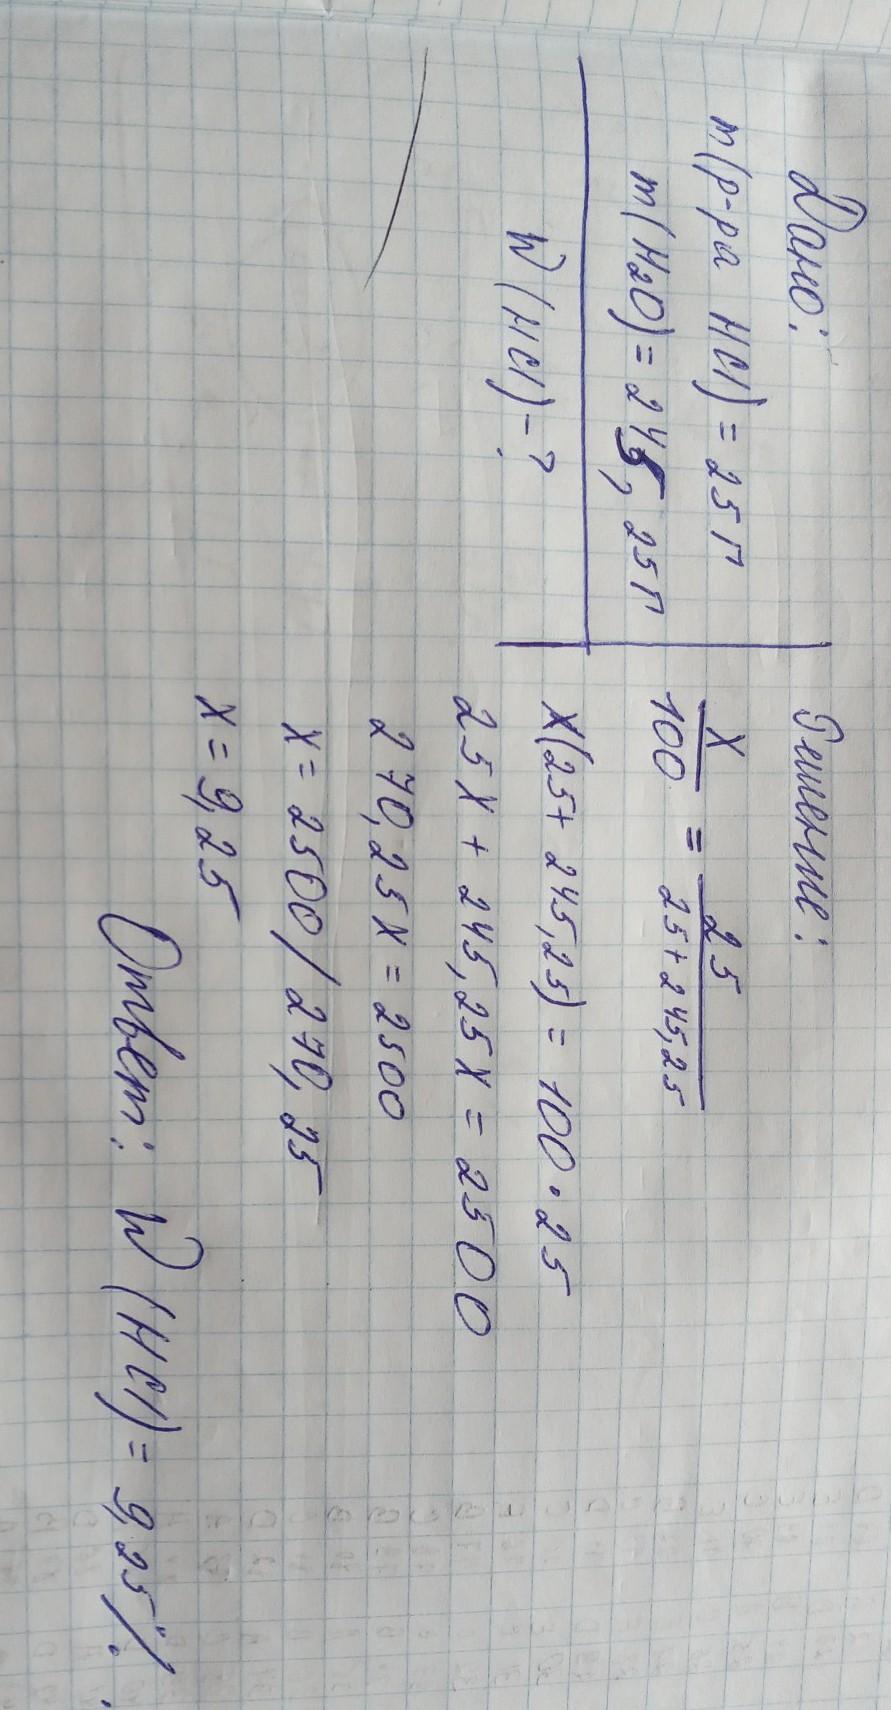 Дано:
m(р-ра HCl) = 25 г
m(H2O) = 245,25 г
W(HCl) - ?
Решение:
X/100 = 25/25+245,25
X(25+ 245,25) = 100 · 25
25X + 245,25X = 2500
270,25X = 2500
X = 2500/270,25
X = 9,25
Ответ: W(HCl) = 9,25%.